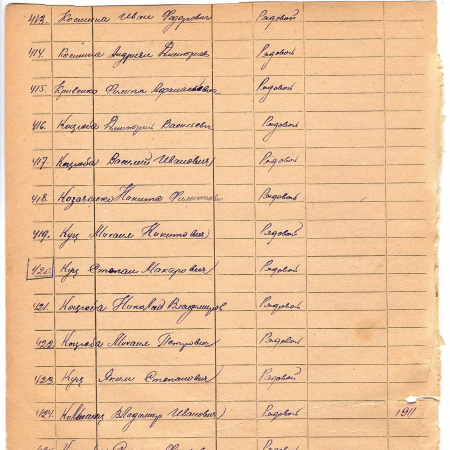 413. Косинна Иван Федорович Рядовой
414. Косинна Андриан Дмитриев Рядовой
415. Кривенко Филипп Афанасьевич Рядовой
416. Коцюба Дмитрий Васильевич Рядовой
417. Коцюба Василий Иванович Рядовой
418. Козаченко Никита Филиппов Рядовой
419. Куц Михаил Никитович Рядовой
420. Куц Степан Макарович Рядовой
421. Коцюба Николай Владимиров Рядовой
422. Коцюба Михаил Петрович Рядовой
423. Куц Яким Степанович Рядовой
424. Владимир Иванович Рядовой 1911